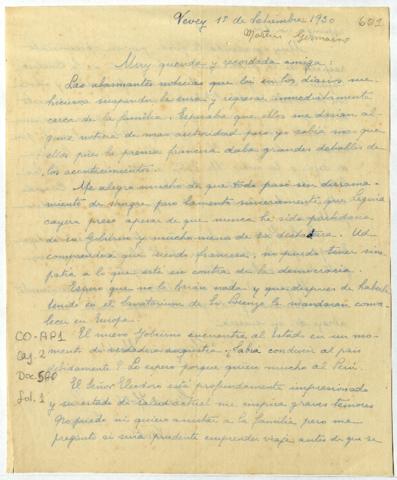 Vevey 1º de Setiembre 1930
601
Martin Germains
Muy querida y recordada amiga:
Las alarmantes noticias que leí en los diarios me
hicieron suspender la cura y regresar inmediatamente
cerca de la familia. Esperaba que ellos me darían al-
guna noticia de mas autoridad pero yo sabía mas que
ellos pues la prensa francesa daba grandes detalles de
los acontecimientos.
Me alegra mucho de que todo pasó sin derrama-
miento de sangre pero lamento sinceramente que Leguía
cayera preso apesar de que nunca he sido partidaria
de su Gobierno y mucho menos de su dictadura. Ud.
comprenderá que siendo francesa, no pueda tener sim-
patía a lo que esté en contra de la democracia.
Espero que no le harán nada y que despues de haberlo
tenido en el Sanatorium de San Lorenzo lo mandarán conva-
lecer en Europa.
El nuevo Gobierno encuentra al Estado en un mo-
mento de verdadera angustia, ¿Sabrá conducir al país
debidamente? Lo espero porque quiero mucho al Perú.
El Señor Eleodoro está profundamente impresionado
y su estado de salud actual me inspira graves temores
No puedo ni quiero asustar a la familia pero me
pregunto si sería prudente emprender viaje antes de que se
CO-AP1
Caj. 2
Doc. 560
fol. 1